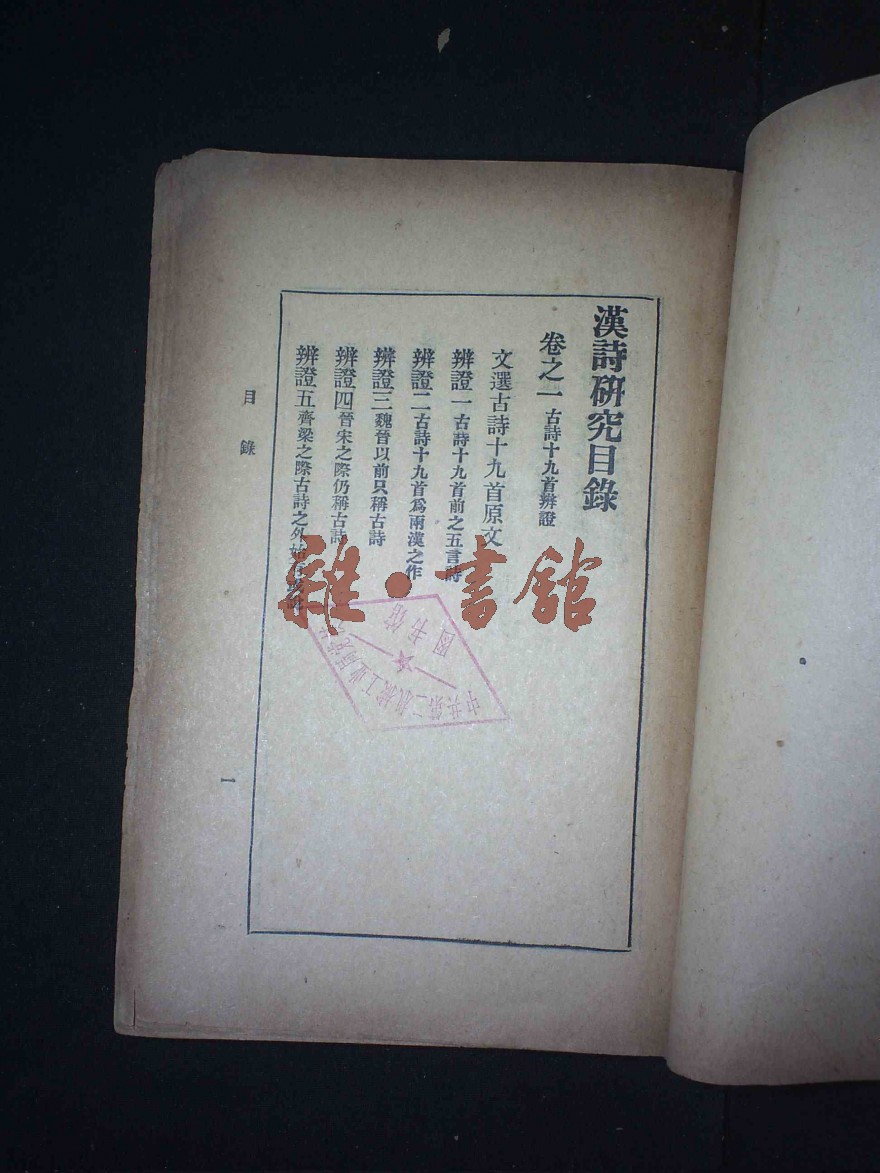 漢詩研究目錄
卷之一 古詩十九首辨證
文選古詩十九首原文
辨證一 古詩十九首前之五言詩
辨證二 古詩十九首爲兩漢之作
辨證三 魏晉以前只稱古詩
辨證四 晉宋之際仍稱古詩
辨證五 齊梁之際古詩之外始
目錄
一
雜·書館
中共第二机械工业
图书馆